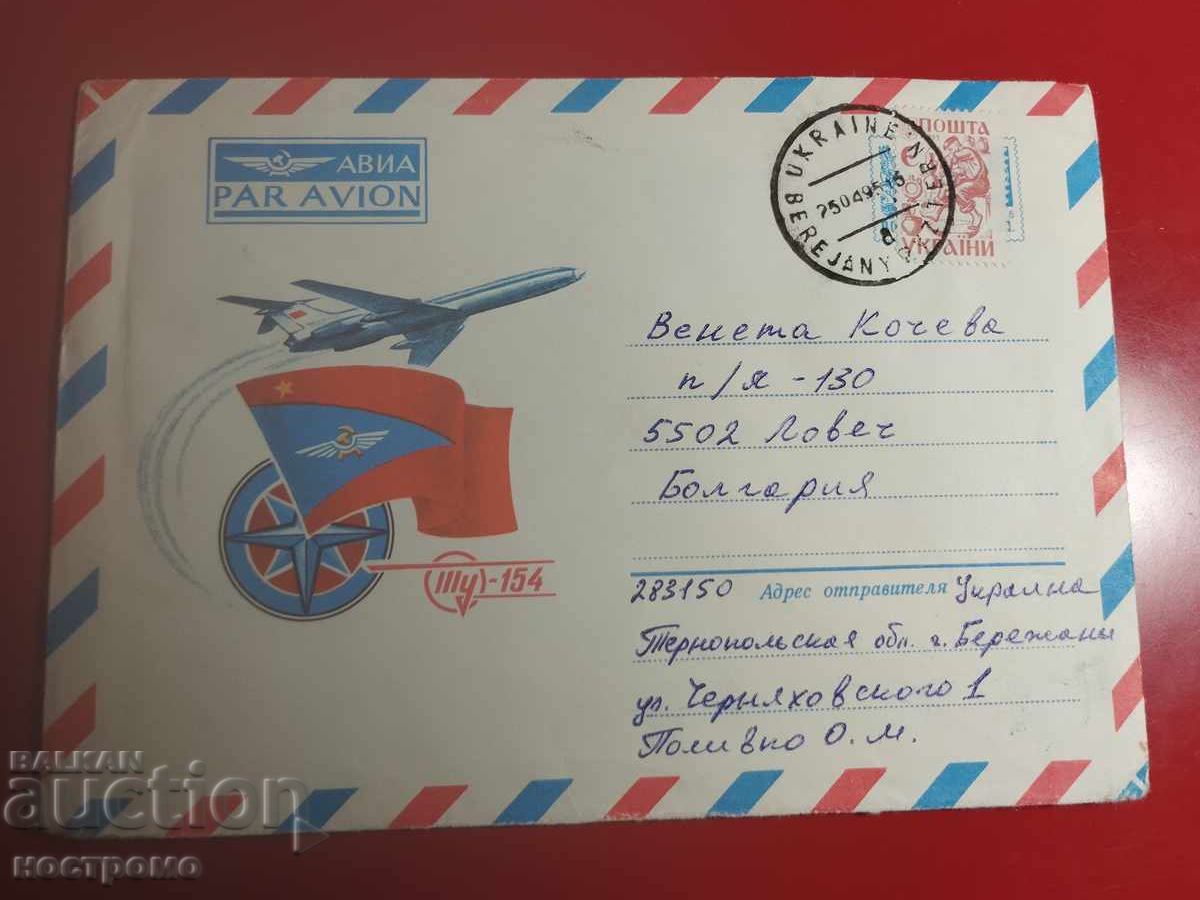 АВИА
PAR AVION
UKRAINE
BEREJANY
250495-15
ПОШТА
УКРАЇНИ
Венета Кочева
п/я -130
5502 Ловеч
Болгария
Ту-154
283150 Адрес отправителя Украина
Тернопольская обл. г. Бережаны
ул. Черняховского 1
Поливко О. М.
BALKAN
auction
ностромо